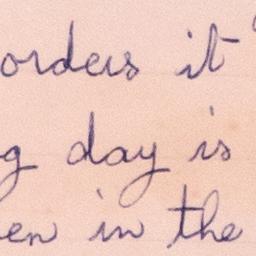 orders it
g day is
en in the